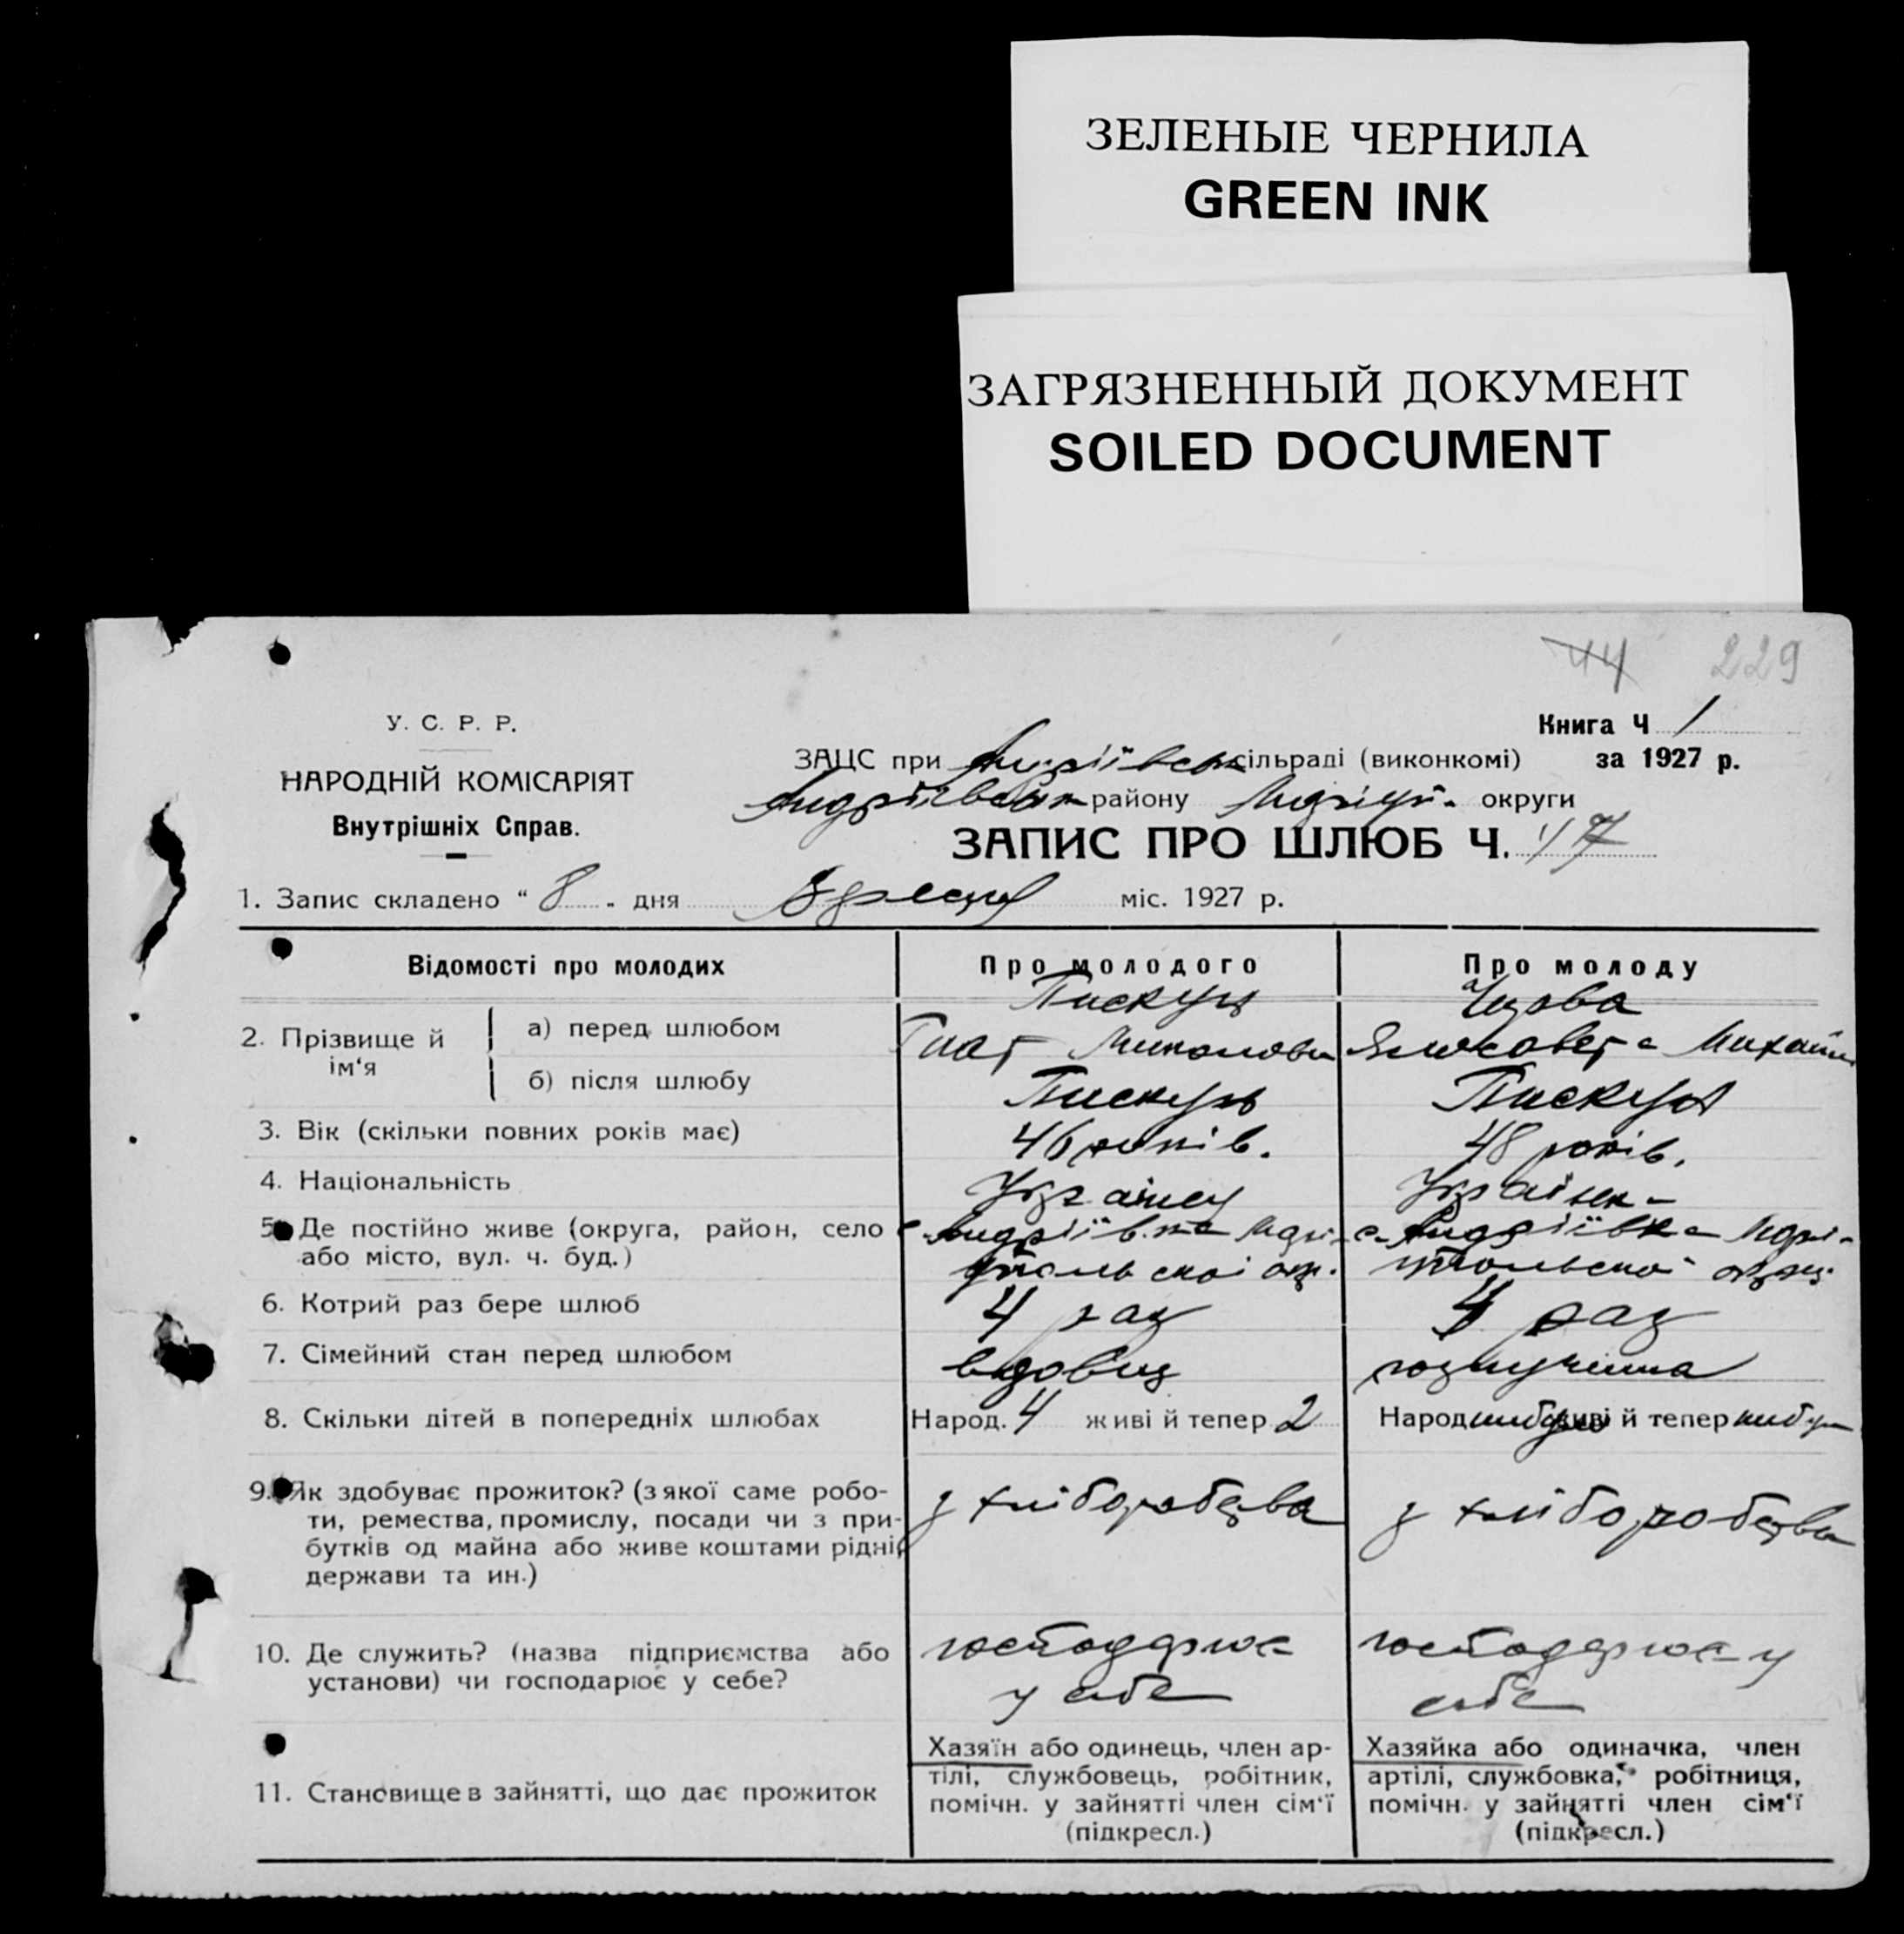 ЗЕЛЕНЫЕ ЧЕРНИЛА
GREEN INK
ЗАГРЯЗНЕННЫЙ ДОКУМЕНТ
SOILED DOCUMENT
44 229
У. С. Р. Р.
НАРОДНІЙ КОМІСАРІЯТ
Внутрішніх Справ.
Книга Ч 1
ЗАЦС при Андріївськ сільраді (виконкомі) за 1927 р.
Андріївськ району округи
ЗАПИС ПРО ШЛЮБ Ч. 47
1. Запис складено " 8 " дня Вресня міс. 1927 р.
Відомості про молодих Про молодого Про молоду
2. Прізвище й ім'я
а) перед шлюбом Пискун Гнат Миколови
б) після шлюбу Пискун Пискун
3. Вік (скільки повних років має) 46 років. 48 років.
4. Національність Українец Українка
5. Де постійно живе (округа, район, село с. Андріївка Марі- с. Андріївка Марі-
або місто, вул. ч. буд.) упольскої окр. упольскої окр.
6. Котрий раз бере шлюб 4 раз 4 раз
7. Сімейний стан перед шлюбом вдовец розлучена
8. Скільки дітей в попередніх шлюбах Народ. 4 живі й тепер 2 Народ. небуло живі й тепер небуло
9. Як здобуває прожиток? (з якої саме робо- з хліборобства з хліборобства
ти, ремества, промислу, посади чи з при-
бутків од майна або живе коштами рідні,
держави та ин.)
10. Де служить? (назва підприємства або господарює господарює у
установи) чи господарює у себе? у себе себе
11. Становище в зайнятті, що дає прожиток
Хазяїн або одинець, член ар-
тілі, службовець, робітник,
помічн. у зайнятті член сім'ї
(підкресл.)
Хазяйка або одиначка, член
артілі, службовка, робітниця,
помічн. у зайнятті член сім'ї
(підкресл.)